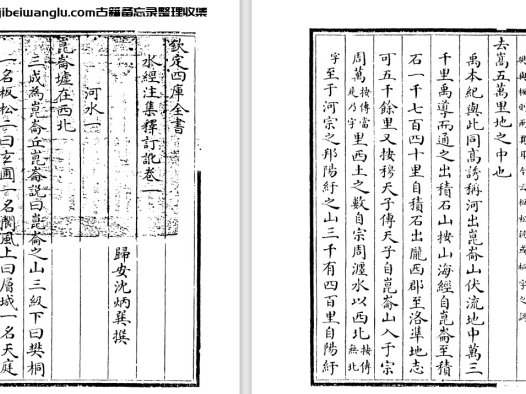 jibeiwanglu.com古籍备忘录整理收集
欽定四庫全書
水經注集釋訂訛卷一
歸安沈炳巽撰
河水一
崑崙墟在西北
三成為崑崙丘崑崙說曰崑崙之山三級下曰樊桐
一名板松二曰玄圃一名閬風上曰層城一名天庭
去嵩五萬里地之中也
禹本紀與此同高誘稱河出崑崙山伏流地中萬三
千里禹導而通之出積石山按山海經自崑崙至積
石一千七百四十里自積石出隴西郡至洛準地志
可五千餘里又按穆天子傳天子自崑崙山入于宗
周萬按傳當是乃字里西土之數自宗周瀍水以西北按傳無北
字至于河宗之邦陽紆之山三千有四百里自陽紆